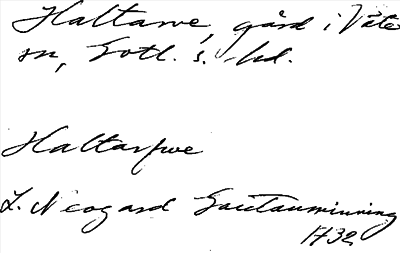 Haltarve, gård i Väte
sn, Gotl. s. hd.
Haltarfwe
L. Neogard Gautauminning
1732